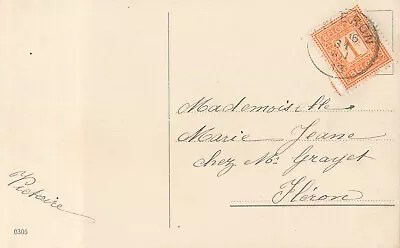 HÉRON
1
Mademoiselle
Marie Jeane
chez Mr Grayet
Héron
Victoire
0305